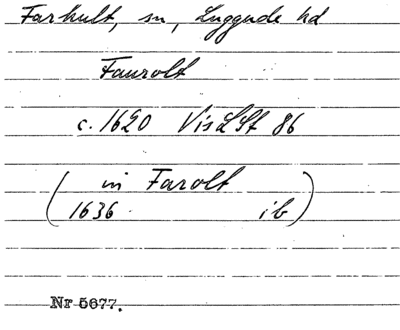 Farhult, sn, Luggude hd
Faurolt
c. 1620 VisLSt 86
( in Farolt
1636 ib )
Nr 5677.